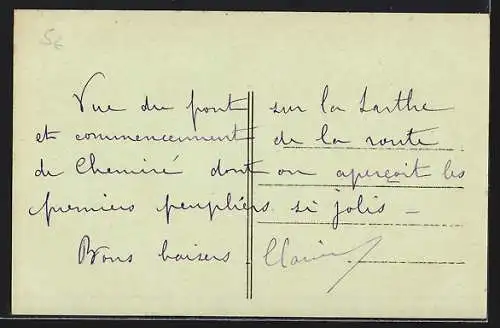 5€
Vue du pont sur la Sarthe
et commencement de la route
de Chemiré dont on aperçoit les
premiers peupliers si jolis –
Bons baisers